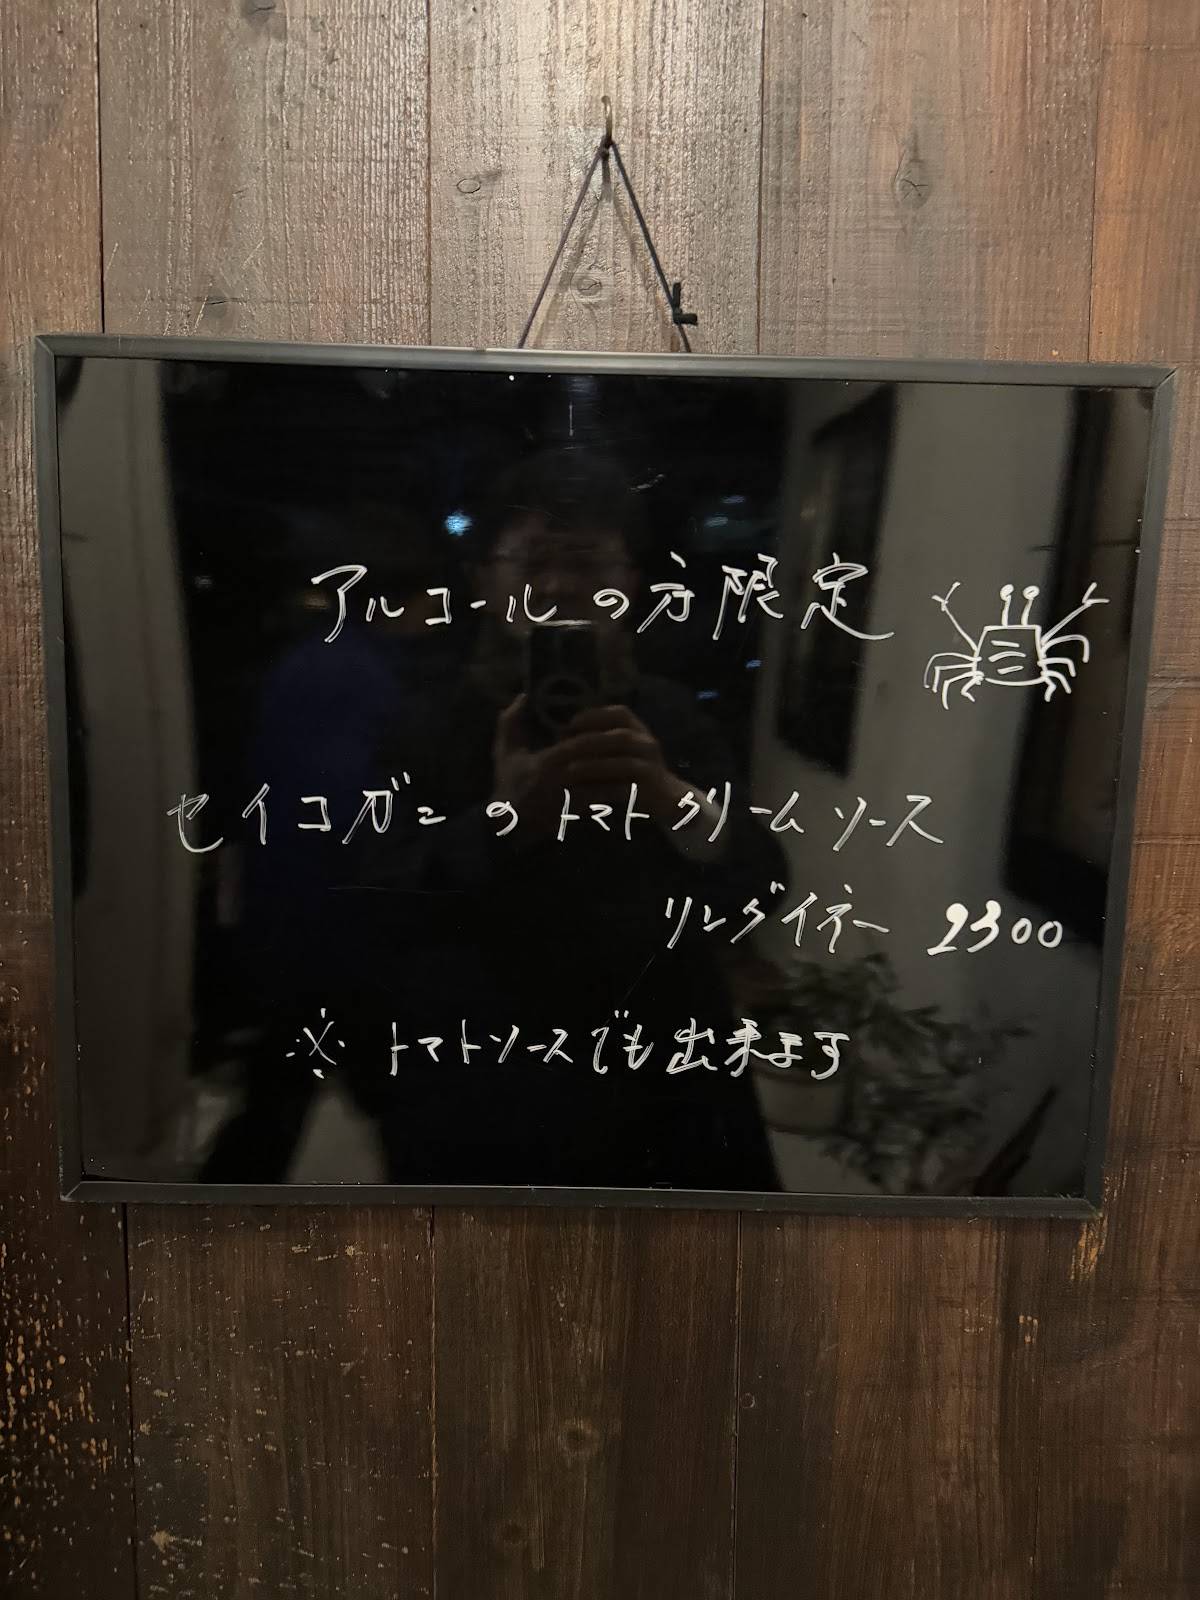 アルコールの方限定
セイコガニのトマトクリームソース
リングイネー 2300
※ トマトソースでも出来ます